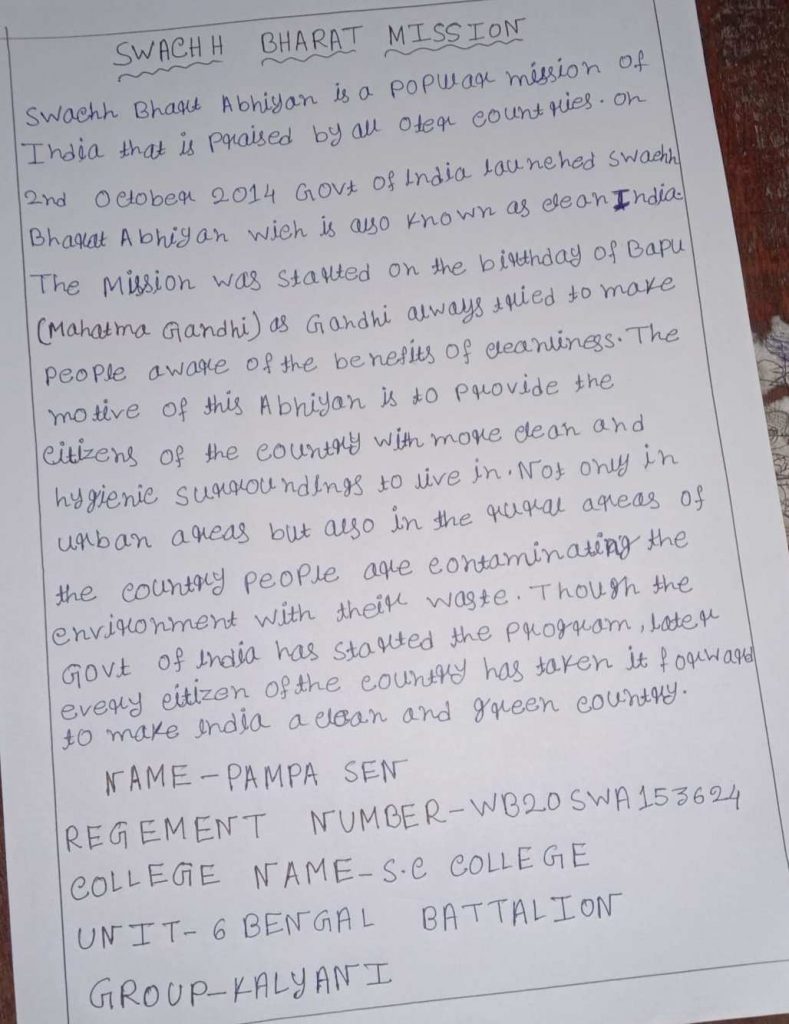 SWACHH BHARAT MISSION
Swachh Bharat Abhiyan is a popular mission of
India that is praised by all oter countries. On
2nd October 2014 Govt of India launched Swachh
Bharat Abhiyan wich is also known as clean India.
The Mission was started on the birthday of Bapu
(Mahatma Gandhi) as Gandhi always tried to make
people aware of the benefits of cleanliness. The
motive of this Abhiyan is to provide the
citizens of the country with more clean and
hygienic surroundings to live in. Not only in
urban areas but also in the rural areas of
the country people are contaminating the
environment with their waste. Though the
Govt of India has started the program, later
every citizen of the country has taken it forward
to make India a clean and green country.
NAME - PAMPA SEN
REGEMENT NUMBER - WB20SWA153624
COLLEGE NAME - S.C COLLEGE
UNIT - 6 BENGAL BATTALION
GROUP - KALYANI